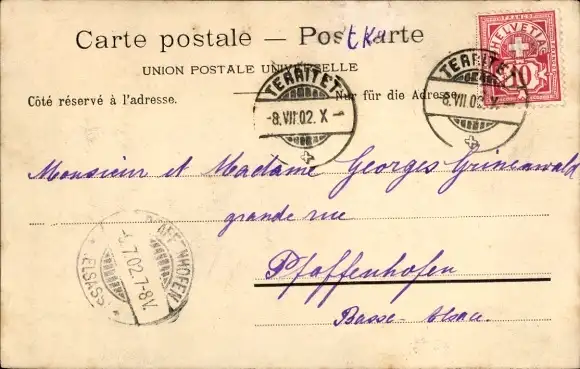 Carte postale — Postkarte
UNION POSTALE UNIVERSELLE
Côté réservé à l'adresse. Nur für die Adresse.
HELVETIA
FRANCO
10
TERRITET
-8.VII.02. X
TERRITET
-8.VII.02. X
Monsieur et Madame Georges Grünenwald
grande rue
Pfaffenhofen
Basse-Alsace.
PFAFFENHOFEN
7.02. 7-8V.
ELSASS